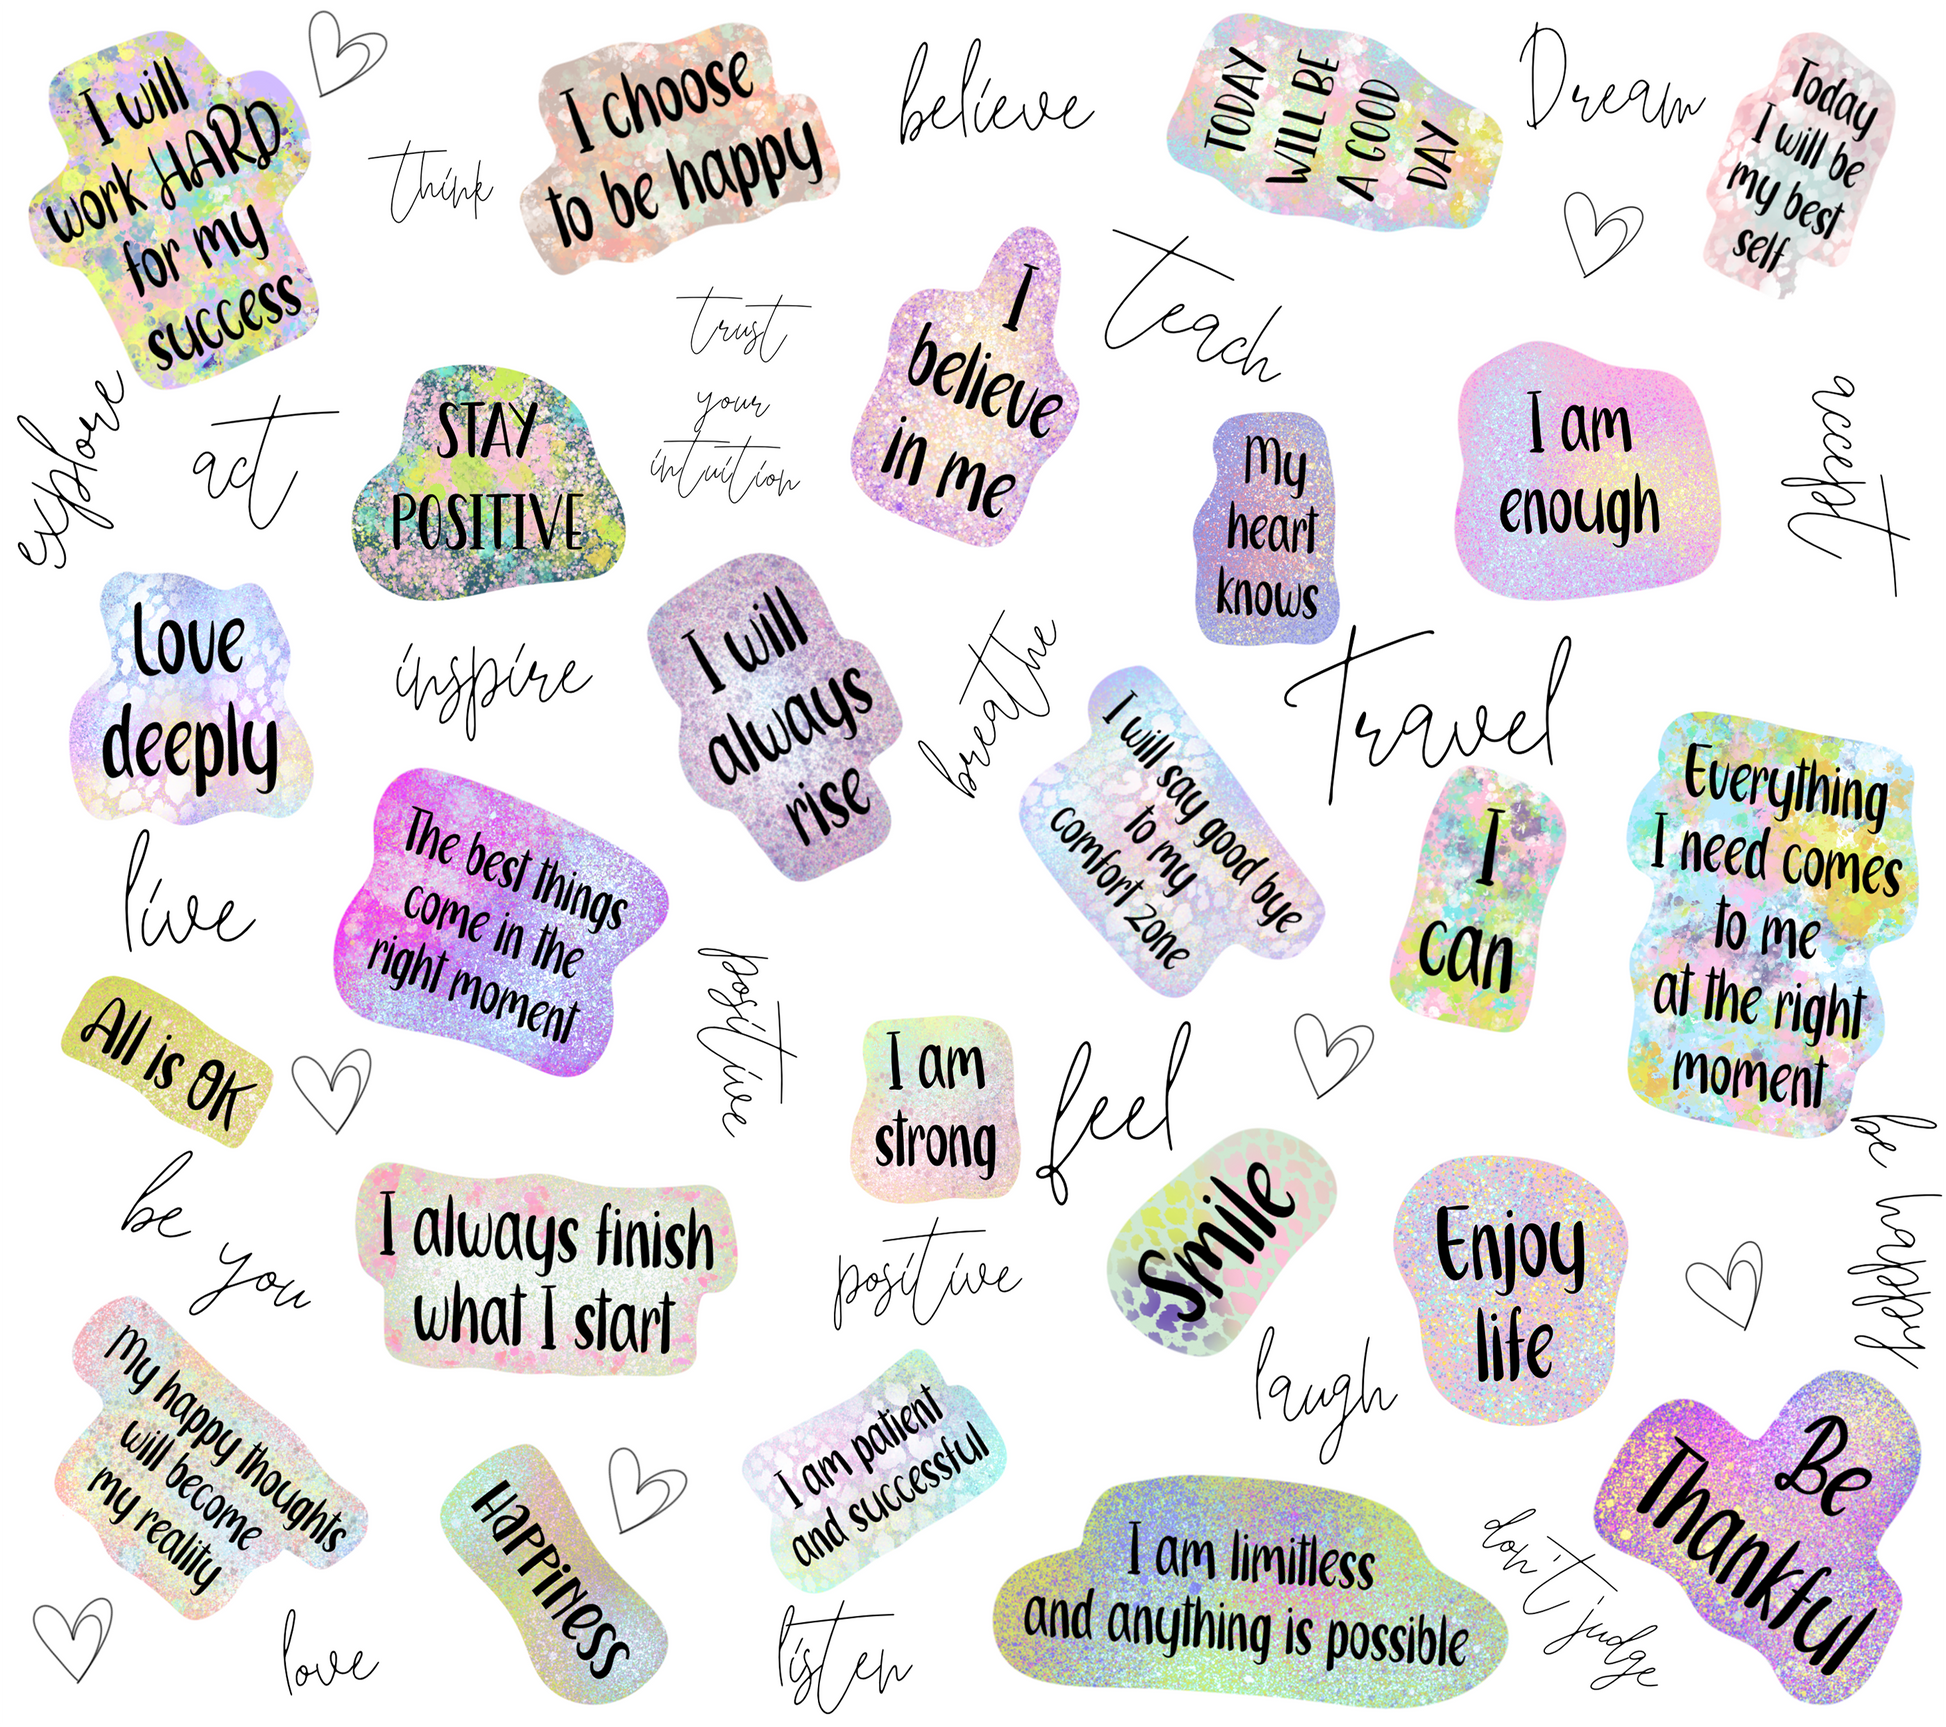 I will
work HARD
for my
success
think
I choose
to be happy
believe
TODAY
WILL BE
A GOOD
DAY
Dream
Today
I will be
my best
self
explore
act
STAY
POSITIVE
trust
your
intuition
I
believe
in me
teach
My
heart
knows
I am
enough
accept
Love
deeply
inspire
I will
always
rise
breathe
I will say good bye
to my
comfort zone
Travel
I
can
Everything
I need comes
to me
at the right
moment
live
The best things
come in the
right moment
positive
All is OK
I am
strong
feel
be happy
be you
I always finish
what I start
positive
Smile
Enjoy
life
laugh
My happy thoughts
will become
my reality
HAPPINESS
I am patient
and successful
I am limitless
and anything is possible
don't judge
Be
Thankful
love
listen